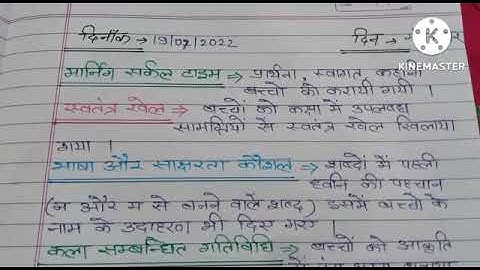 दिनाँक → 19/07/2022 दिन →
KINEMASTER
मार्निंग सर्कल टाइम ⇒ प्रार्थना, स्वागत कहानी
बच्चों को करायी गयी ।
स्वतंत्र खेल ⇒ बच्चों को कक्षा में उपलब्ध
सामग्रियों से स्वतंत्र खेल खिलाया
गया ।
भाषा और साक्षरता कौशल ⇒ शब्दों में पहली
ध्वनि की पहचान
(ज और म से बनने वाले शब्द) इसमें बच्चों के
नाम के उदाहरण भी दिए गए ।
कला सम्बन्धित गतिविधि ⇒ बच्चों को आकृति
में रंग